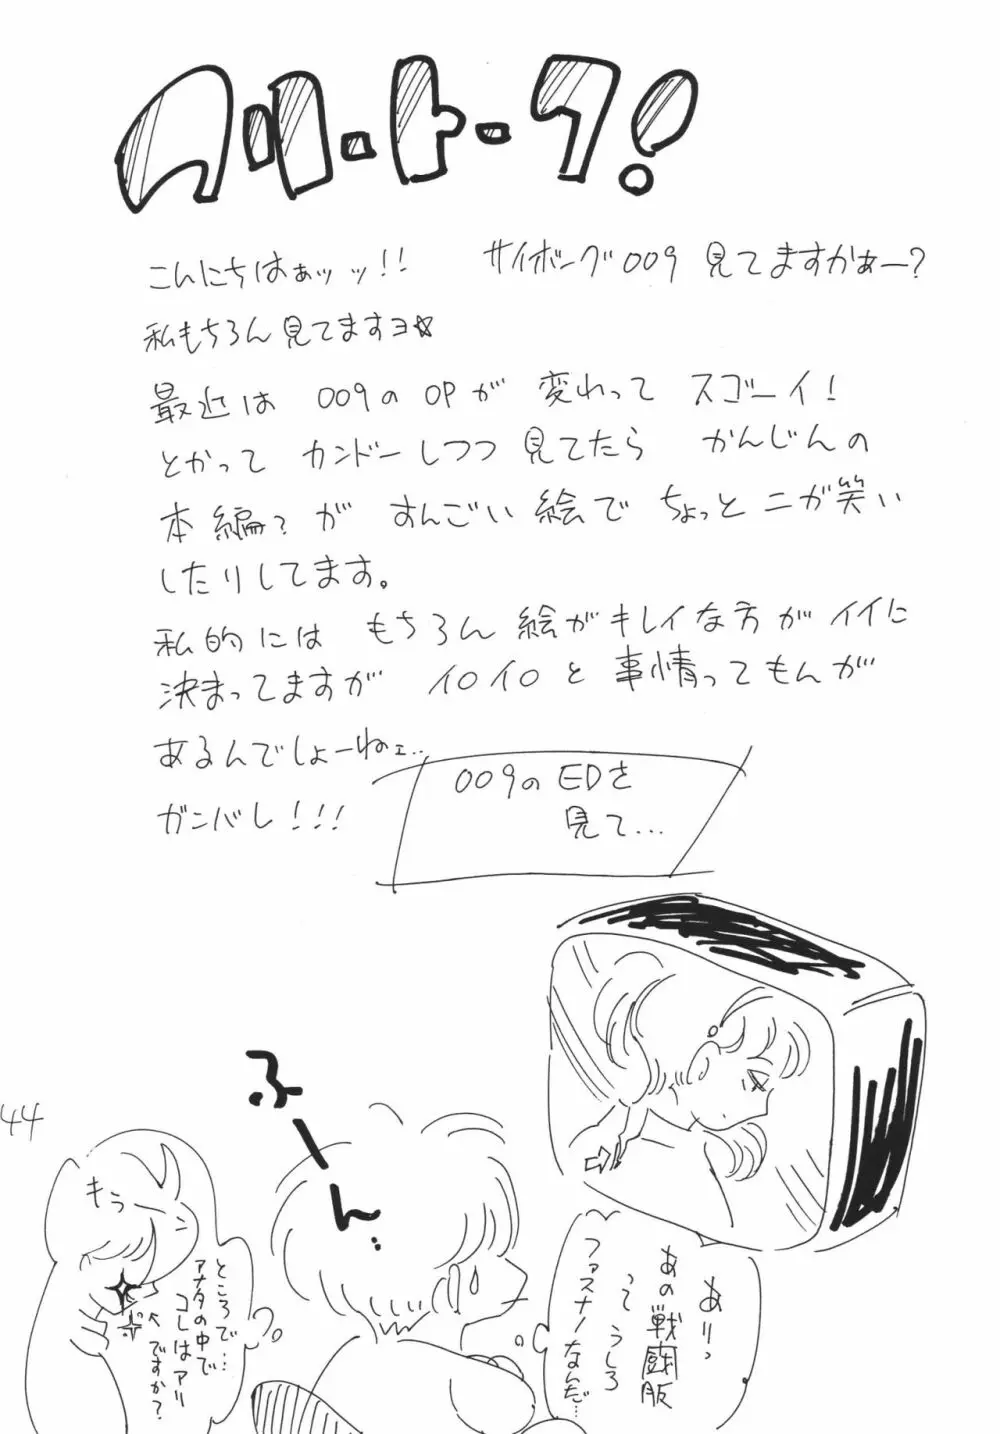 フリートーク!
こんにちはぁッッ!! サイボーグ009 見てますかぁー?
私もちろん見てますヨ☆
最近は 009のOPが 変わって スゴーイ!
とかって カンドーしつつ 見てたら かんじんの
本編?が すんごい絵で ちょっとニガ笑い
したりしてます。
私的には もちろん 絵がキレイな方がイイに
決まってますが イロイロと 事情ってもんが
あるんでしょーねェ…
ガンバレ!!!
009のEDを
見て…
ふーん…
あリっ
あの戦闘服
って うしろ
ファスナーなんだ…
もうっ
ところで…
アナタの中で
コレはアリ
ですか?
44